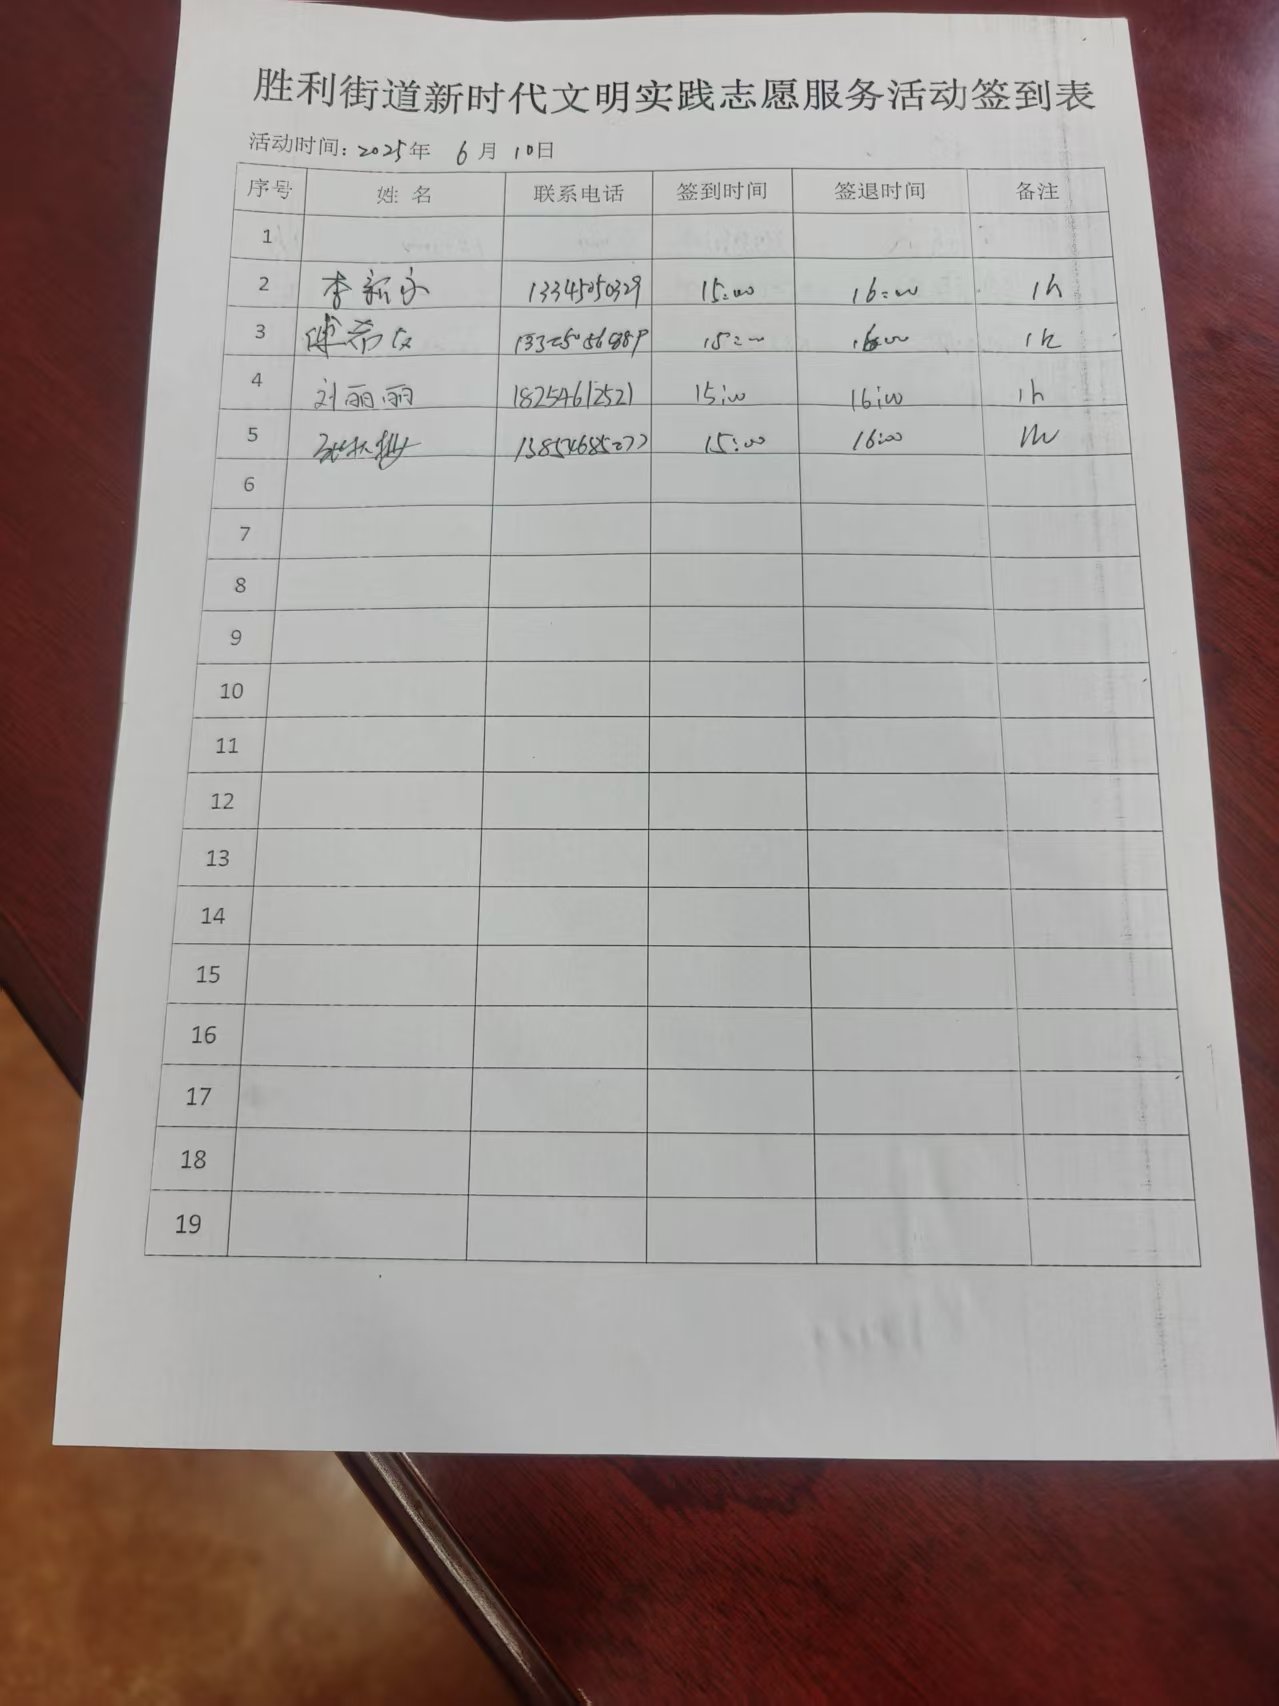 胜利街道新时代文明实践志愿服务活动签到表
活动时间：2025年 6月 10日
序号 姓 名 联系电话 签到时间 签退时间 备注
1
2 李新 13345050329 15:00 16:00 1h
3 傅希 15:00 16:00 1h
4 刘丽丽 18254612521 15:00 16:00 1h
5 15:00 16:00 1h
6
7
8
9
10
11
12
13
14
15
16
17
18
19